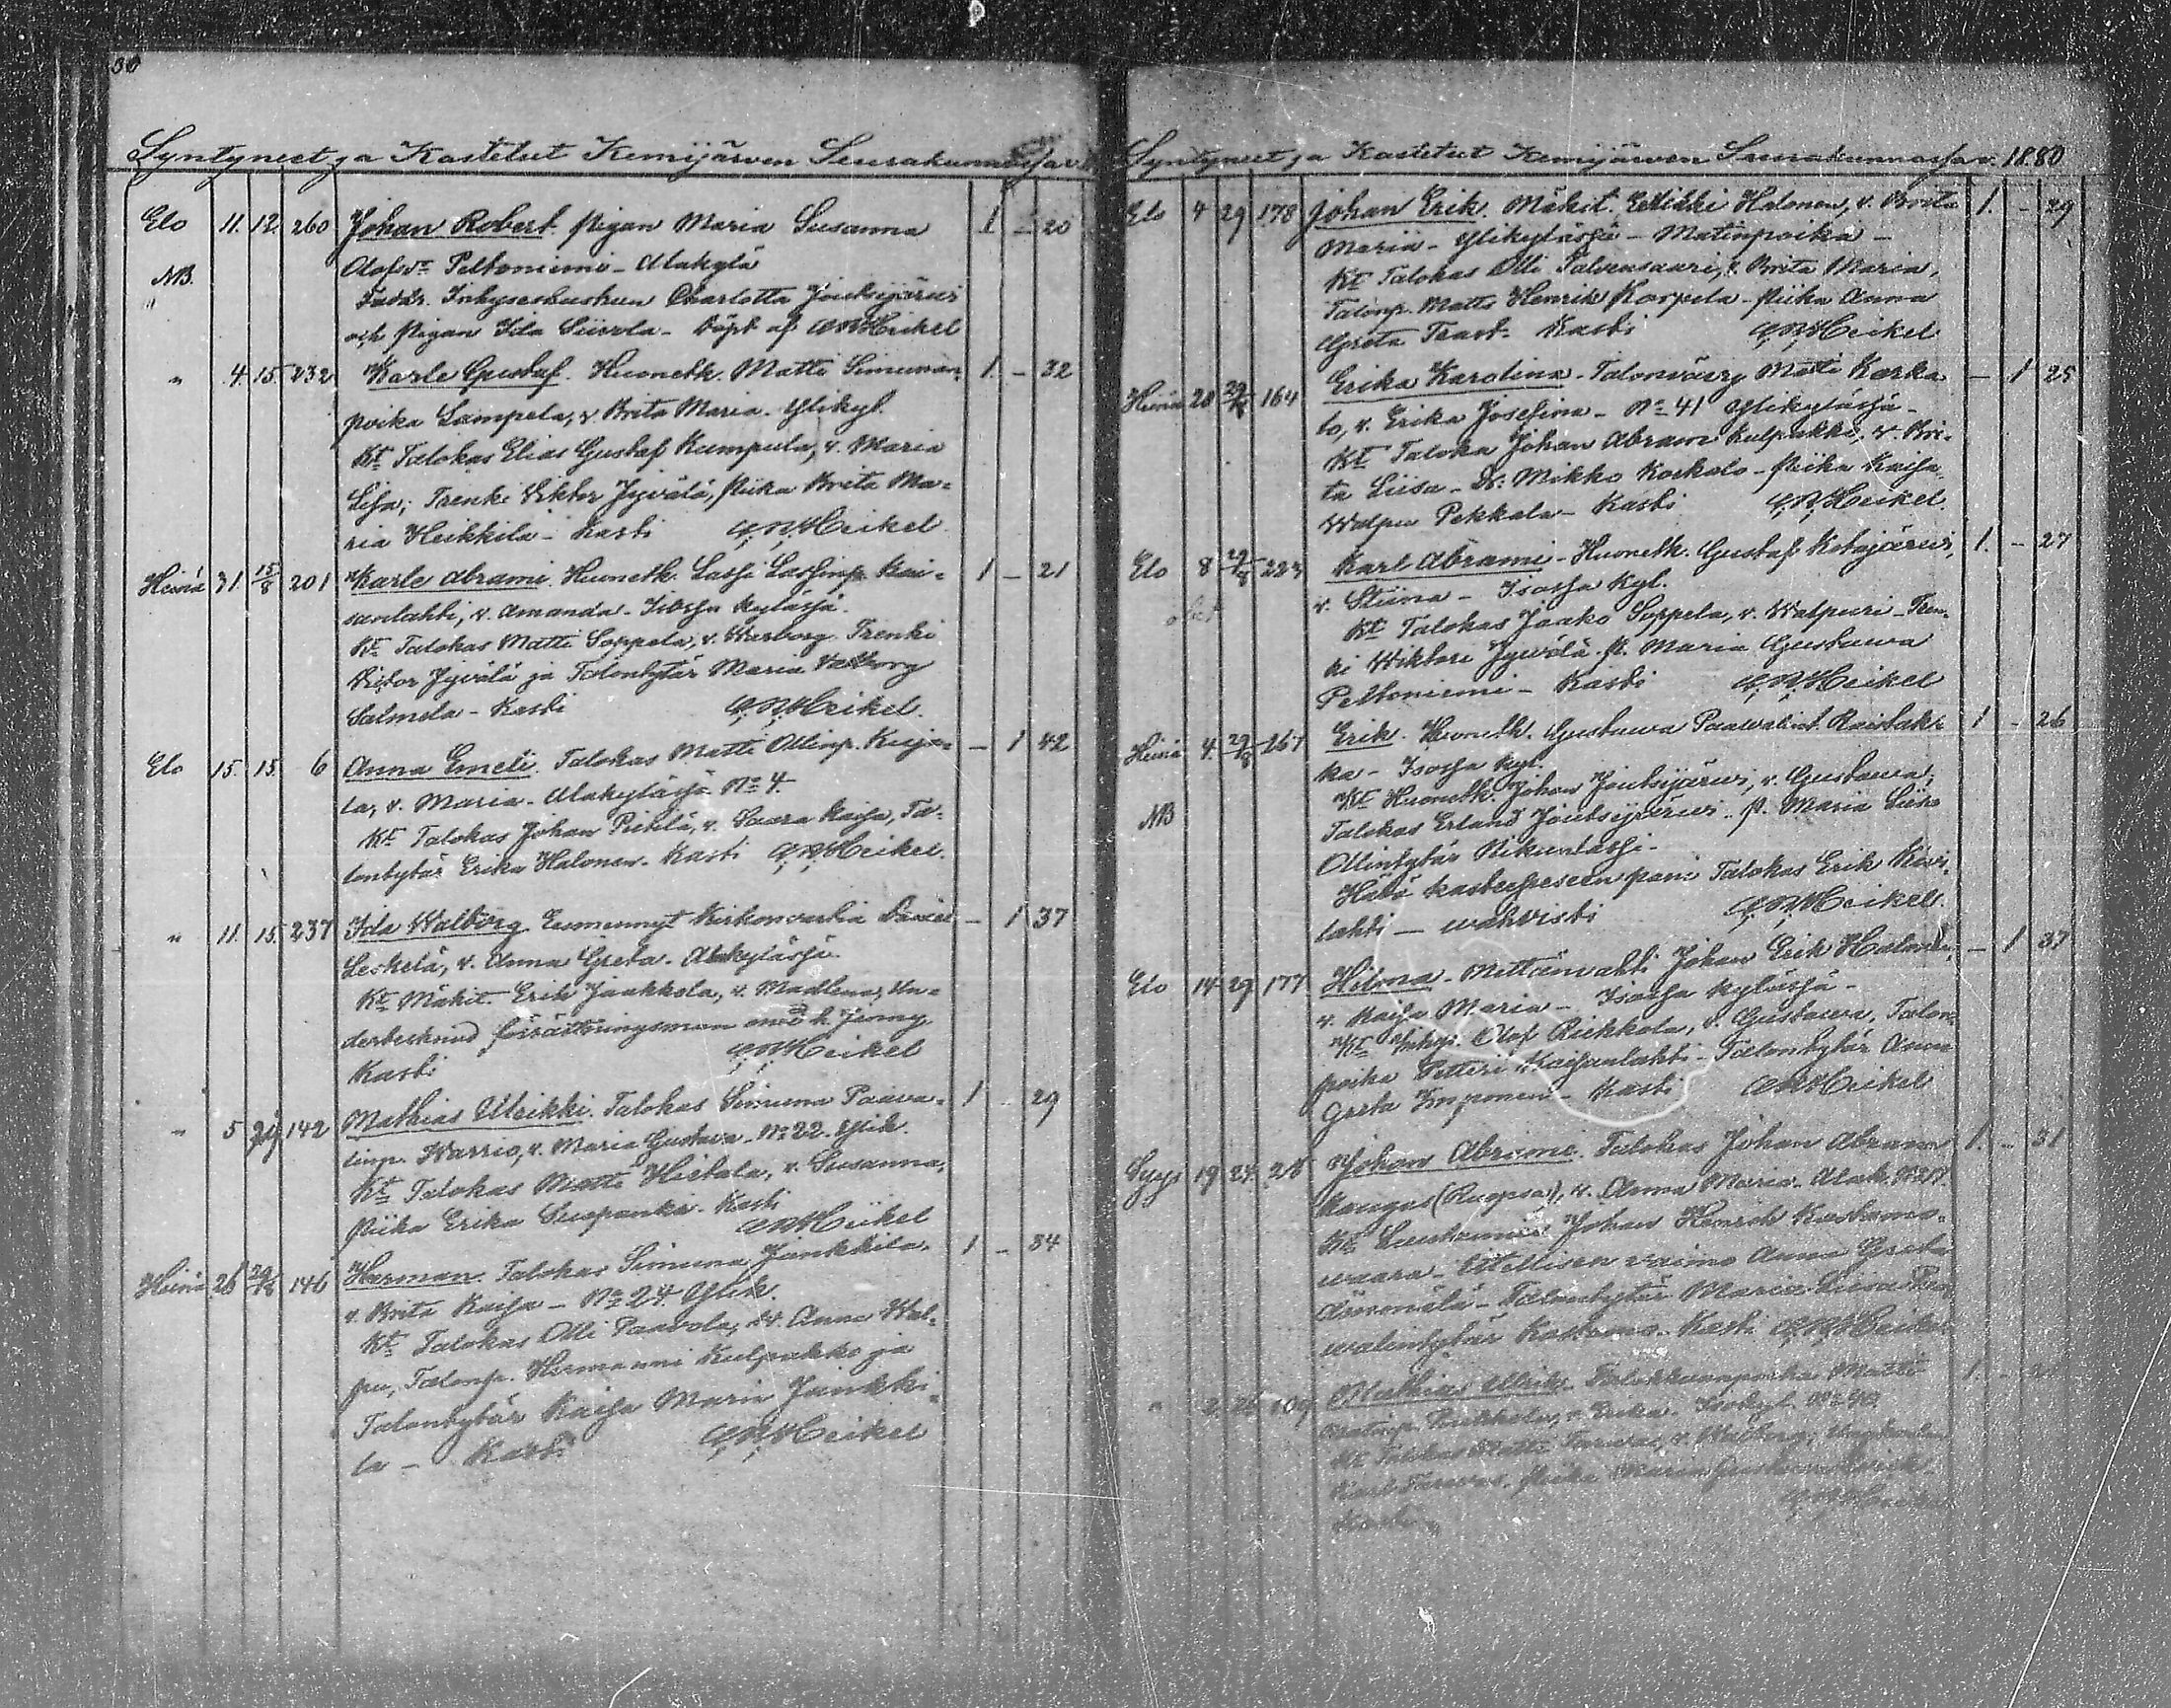 30
Syntyneet ja Kastetut Kemijärven Seurakunnassa v.
Elo 11. 12. 260 Johan Robert. Pigan Maria Susanna 1 – 20
Olofsdr Peltoniemi – Alakylä
NB. Faddr. Inhyseshustrun Charlotta Joutsijärvi
och Pigan Ida Siivola – Döpt af O. W. Heikel
" 4. 15. 232 Karle Gustaf. Huonetk. Matti Simunan- 1. – 32
poika Lampela, v. Brita Maria. Ylikyl.
Kt Talokas Elias Gustaf Kumpula, v. Maria
Lisa; Trenki Viktor Jyvälä, Piika Brita Ma-
ria Heikkilä – Kasti Heikel
Heinä 31. 15/8 201 Karle Abrami. Huonetk. Lassi Lassinp. Kai- 1 – 21
sanlahti, v. Amanda – Isossa kylässä.
Kt Talokas Matti Soppela, v. Warborg. Trenki
Viktor Jyvälä ja Talontytär Maria Walborg
Salmela – Kasti Heikel.
Elo 15. 15. 6 Anna Emeli. Talokas Matti Ollinp. Kuja- – 1 42
la, v. Maria – Alakylässä No 4.
Kt Talokas Johan Pichlä, v. Saara Kaisa, Ta-
lontytär Erika Halonen. Kasti Heikel.
" 11. 15. 237 Ida Walborg. Eumennyt Kirkonvartia Daniel – 1 37
Leskelä, v. Anna Greta. Alakylässä.
Kt Mäkit. Erik Jaakkola, v. Madlena, Un-
dertecknad församlingsman med h. Jenny
Kasti Heikel
" 5 29 142 Mathias Ulrikki. Talokas Simuna Paava- 1 – 29
linp. Warrio, v. Maria Gustava. No 22. Ylik.
Kt Talokas Matti Hietala, v. Susanna,
Piika Erika Suopanki. Kasti Heikel
Heinä 26 29/8 146 Herman. Talokas Simuna Jankkila, 1 – 34
v. Brita Kaisa – No 24. Ylik.
Kt Talokas Olli Paavola, v. Anna Wal-
pu, Talonp. Hermanni Kulpakko ja
Talontytär Kaisa Maria Jankki-
la – Kasti Heikel
Syntyneet ja Kastetut Kemijärven Seurakunnassa v. 1880
Elo 4 29 178 Johan Erik. Mäkit. Heikki Halonen, v. Brita 1. – 29
Maria – Ylikylässä – Matinpoika –
Kt Talokas Olli Talvensaari, v. Brita Maria,
Talonp. Matts Henrik Karpela – Piika Anna
Greta Trast. Kasti Heikel
Heinä 28 29/8 164 Erika Karolina – Talonvävy Matti Karka- – 1 25
lo, v. Erika Josefina – No 41 Ylikylässä –
Kt Taloka Johan Abram Kulpakko, v. Bri-
ta Liisa – Dr: Mikko Karkalo – Piika Kaisa
Walpu Pekkala – Kasti Heikel.
Elo 8 29/8 223 Karl Abrami – Huonetk. Gustaf Kotajärvi, 1. – 27
v. Stiina – Isossa kyl.
Kt Talokas Jaako Soppela, v. Walpuri – Tren-
ki Wiktori Jyvälä. P. Maria Gustawa
Peltoniemi – Kasti Heikel
Heinä 4. 29/8 267 Erik. Huonetk. Gustawa Paavalint. Raistak- 1 – 26
ka – Isossa kyl.
Kt Huonetk. Johan Joutsijärvi, v. Gustawa,
NB Talokas Erland Joutsijärvi. P. Maria Liisa
Ollintytär
Hätä kasteeseen pani Talokas Erik Kivi-
lahti – wahvisti Heikel.
Elo 14 29 177 Hilma – Mettänvahti Johan Erik Halonen, – 1 37
v. Kaisa Maria – Isossa kylässä –
Kt Inhys. Olof Riekkola, v. Gustawa, Talon-
poika Petteri Kaisanlahti – Talontytär Anna
Greta Imponen – Kasti Heikel
Syys 19 24. 25 Johan Abrami. Talokas Johan Abram 1. – 31
Kangas (Ruopsa), v. Anna Maria. Alak. No 17.
Kt Lautamies Johan Henrik Kostamo-
waara – Ettellisen vaimo Anna Greta
– Talontytär Maria Liisa Paa-
walintytär Kostamo. Kasti Heikel
" 2. 26 109 Mathias Ulrik. Talokkaanpoika Matti 1. –
v. Erika. Isokyl. No 40.
Kt Talokas Matti Tarwas, v. Walborg,
Karl Tarwas. Piika Maria
Kasti Heikel